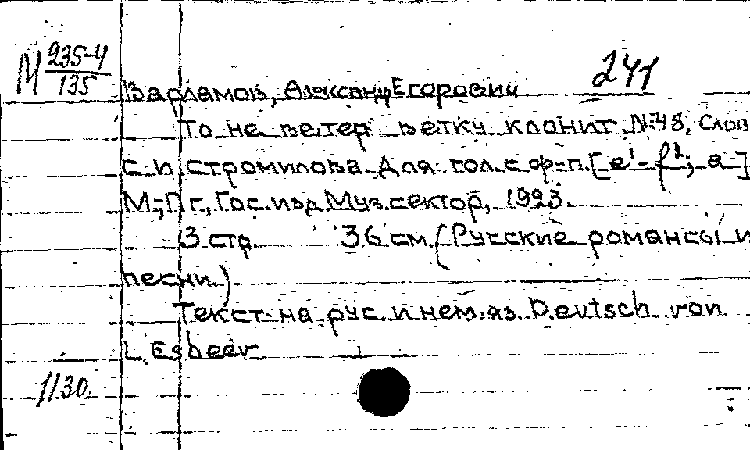 М 235-4
135
241
Варламов, Александр Егорович
То не ветер ветку клонит. N.48, Слов
с.И. Стромилова. Для гол. с ф-п. [e¹-f²; a]
М.; Пг., Гос. изд. Муз. сектор, 1923.
3 стр. 36 см. (Русские романсы и
песни.)
Текст на рус. и нем. яз. Deutsch von
L. Esbeer.
1130